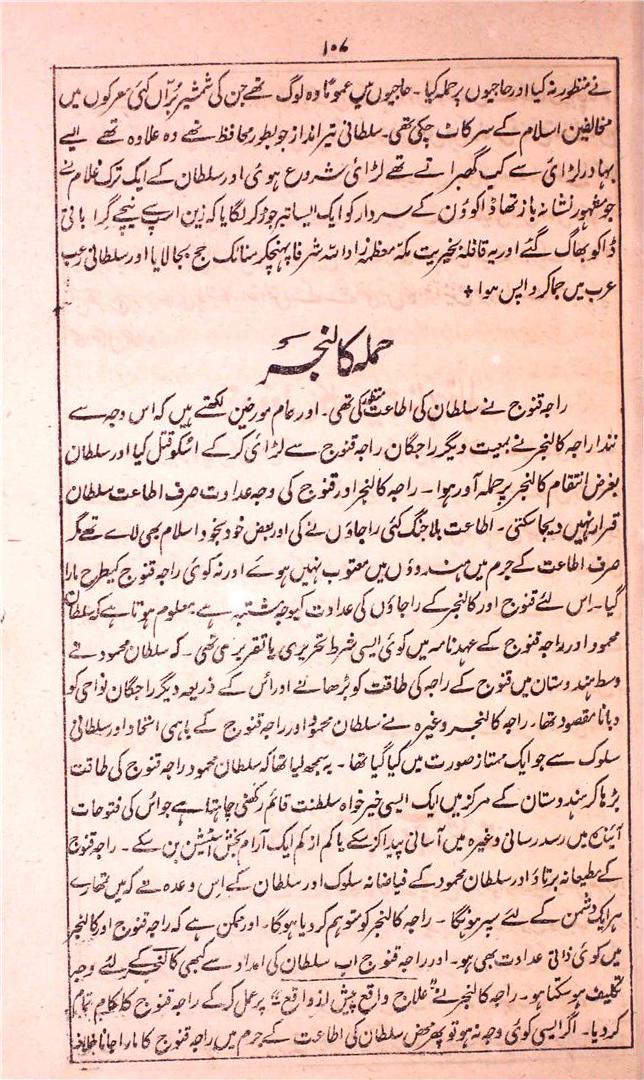 ۱۰۷
نے منظور نہ کیا اور حاجیوں پر حملہ کیا ۔ حاجیوں میں عموماً وہ لوگ تھے جن کی شمشیر بُرّاں کئی معرکوں میں
مخالفین اسلام کے سر کاٹ چکی تھی ۔ سلطانی تیر انداز جو بطور محافظ تھے وہ علاوہ تھے ایسے
بہادر لڑائی سے کب گھبراتے تھے لڑائی شروع ہوئی اور سلطان کے ایک ترک غلام نے
جو مشہور نشانہ باز تھا ڈاکوؤن کے سردار کو ایسا تیر جوڑ کر لگایا کہ زین اسپ سے نیچے گرا باقی
ڈاکو بھاگ گئے اور یہ قافلہ بخیریت مکہ معظمہ زاد اللہ شرفا پہنچکر مناسک حج بجا لایا اور سلطانی رعب
عرب میں جما کر واپس ہوا +
حملہ کالنجر
راجہ قنوج نے سلطان کی اطاعت منظور کی تھی ۔ اور عام مورخین لکھتے ہیں کہ اس وجہ سے
نندا راجہ کالنجر نے بمعیت دیگر راجگان راجہ قنوج سے لڑائی کر کے اسکو قتل کیا اور سلطان
بغرض انتقام کالنجر پر حملہ آور ہوا ۔ راجہ کالنجر اور قنوج کی وجہ عداوت صرف اطاعت سلطان
قرار نہیں دیجا سکتی ۔ اطاعت بلا جنگ کئی راجاؤں نے کی اور بعض خود بخود اسلام بھی لائے تھے مگر
صرف اطاعت کے جرم میں ہندوؤں میں معتوب نہیں ہوئے اور نہ کوئی راجہ قنوج کیطرح مارا
گیا ۔ اس لئے قنوج اور کالنجر کے راجاؤں کی عداوت کیوجہ مشتبہ ہے معلوم ہوتا ہے کہ سلطان
محمود اور راجہ قنوج کے عہد نامہ میں کوئی ایسی شرط تحریری یا تقریری تھی ۔ کہ سلطان محمود نے
وسط ہندوستان میں قنوج کے راجہ کی طاقت کو بڑھانے اور اس کے ذریعہ دیگر راجگان نواحی کو
دبانا مقصود تھا ۔ راجہ کالنجر وغیرہ نے سلطان محمود اور راجہ قنوج کے باہمی اتحاد اور سلطانی
سلوک سے جو ایک ممتاز صورت میں کیا گیا تھا ۔ یہ سمجھ لیا تھا کہ سلطان محمود راجہ قنوج کی طاقت
بڑھا کر ہندوستان کے مرکز میں ایک ایسی خیر خواہ سلطنت قائم رکھنی چاہتا ہے جو اس کی فتوحات
آیندہ میں رسد رسانی وغیرہ میں آسانی پیدا کر سکے یا کم از کم ایک آرام بخش اسٹیشن بن سکے ۔ راجہ قنوج
کے مطیعانہ برتاؤ اور سلطان محمود کے فیاضانہ سلوک اور سلطان کے اس وعدہ نے کہ میں تمھارے
ہر ایک دشمن کے لئے سپر ہونگا ۔ راجہ کالنجر کو متوہم کر دیا ہوگا ۔ اور ممکن ہے کہ راجہ قنوج اور کالنجر
میں کوئی ذاتی عداوت بھی ہو ۔ اور راجہ قنوج اب سلطان کی امداد سے کبھی کالنجر کے لئے وجہ
تکلیف ہو سکتا ہو ۔ راجہ کالنجر نے "علاج واقع پیش از واقع" پر عمل کر کے راجہ قنوج کا کام تمام
کر دیا ۔ اگر ایسی کوئی وجہ نہ ہو تو پھر محض سلطان کی اطاعت کے جرم میں راجہ قنوج کا مارا جانا خلاف